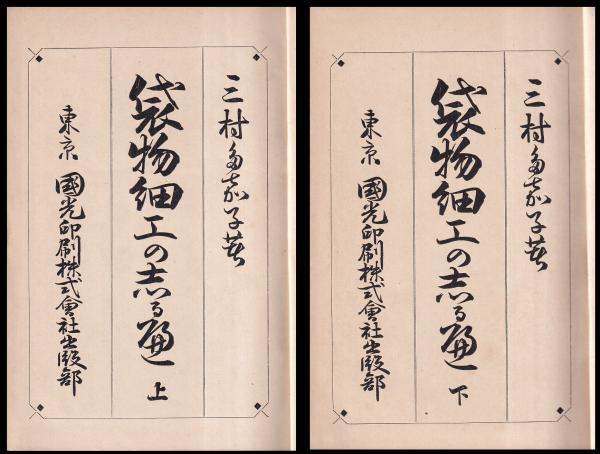 三村多嘉子著
袋物細工の志る遍 上
東京 國光印刷株式會社出版部
三村多嘉子著
袋物細工の志る遍 下
東京 國光印刷株式會社出版部